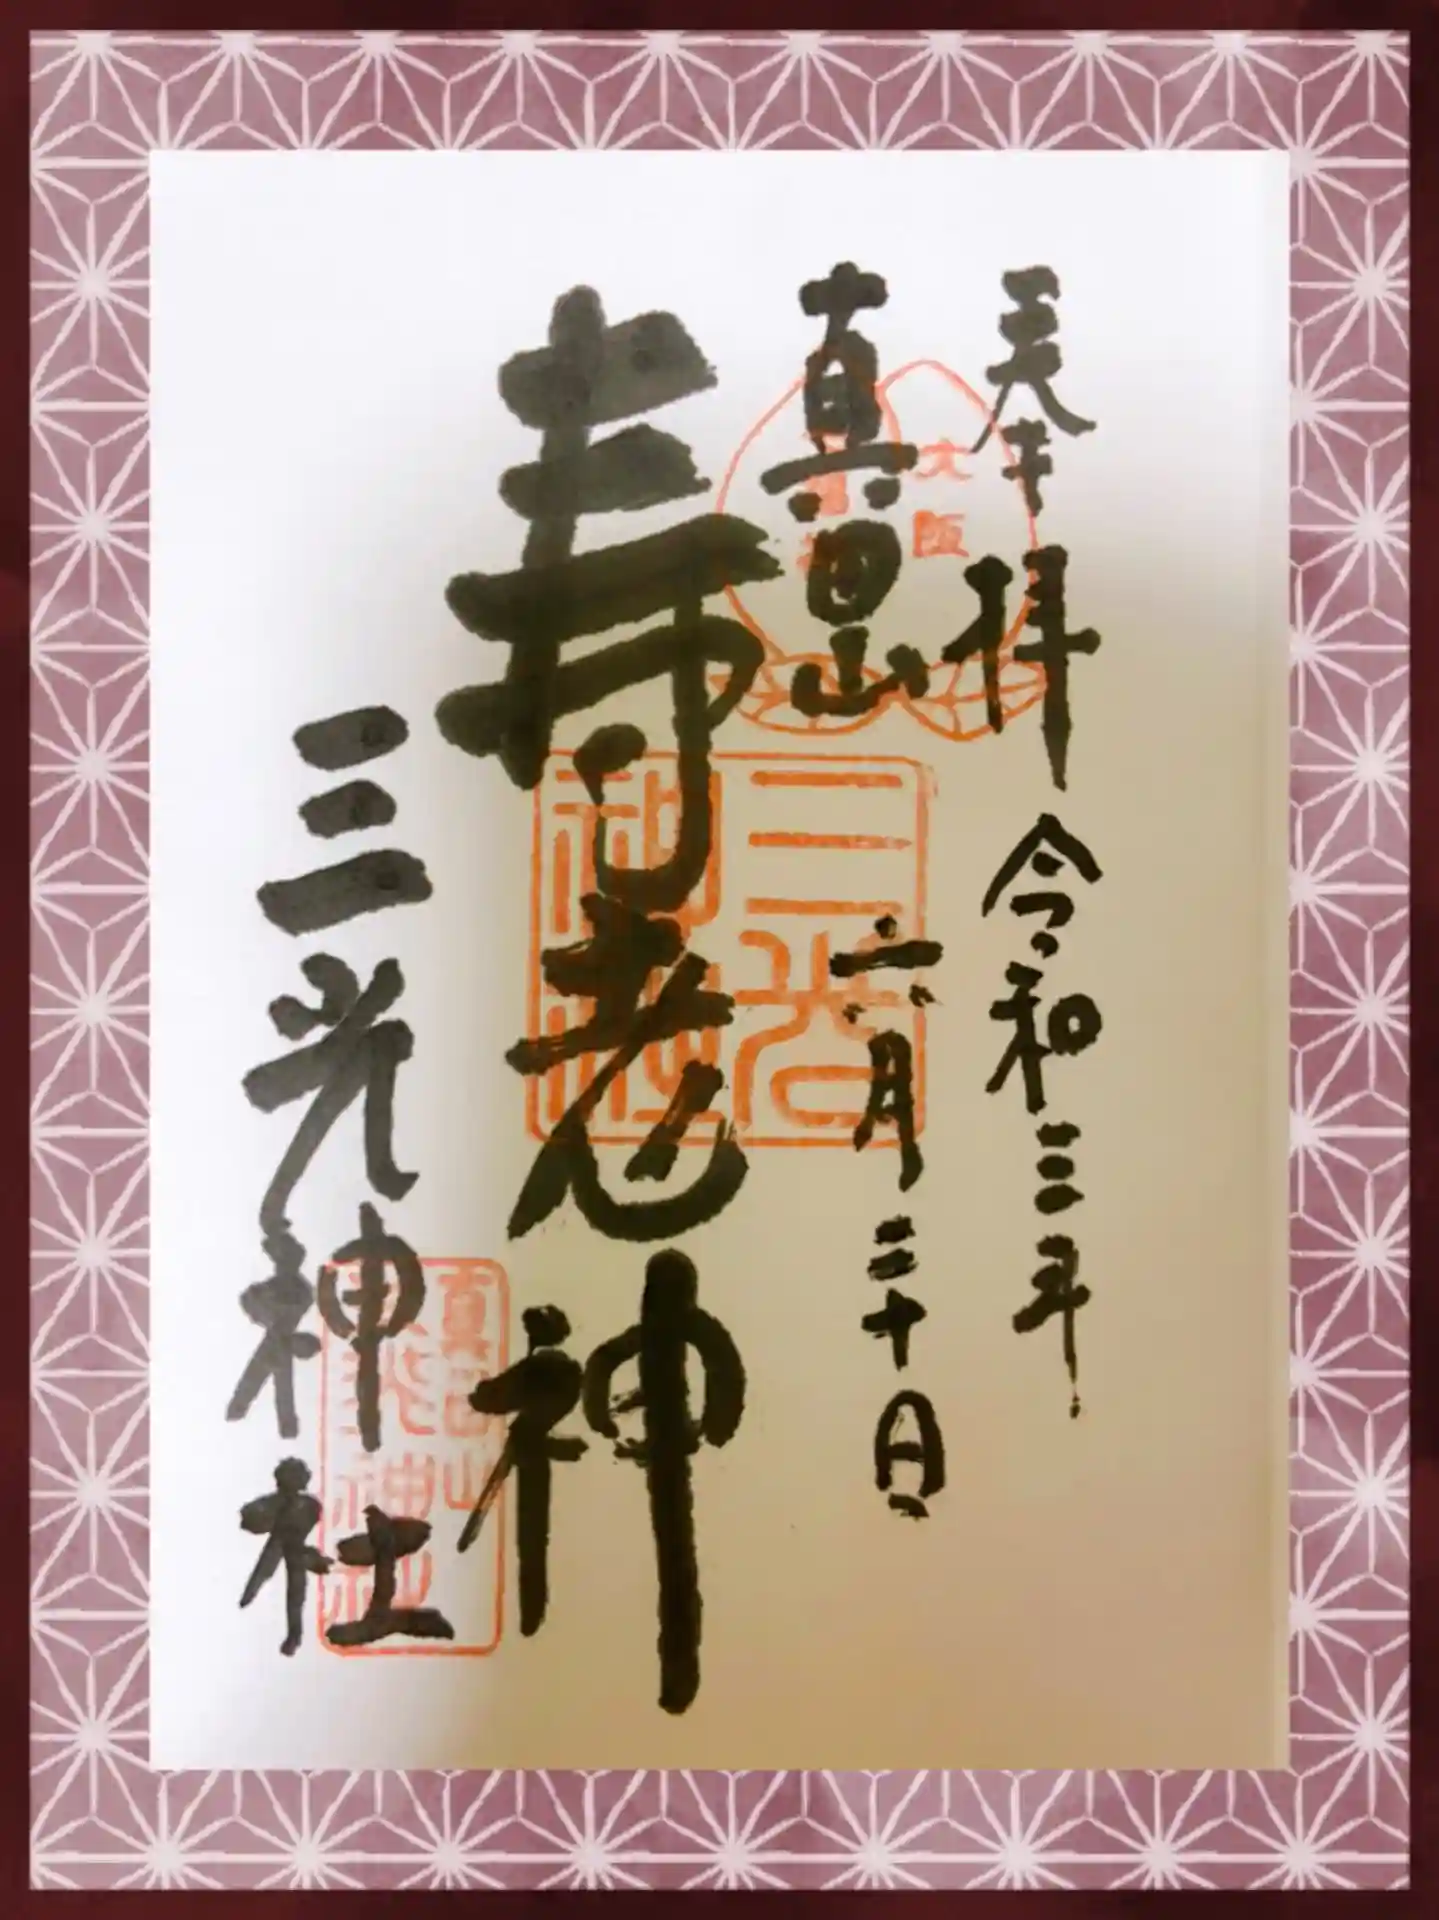 奉拝 令和三年
真田山 六月三十日
寿老神
三光神社
大阪
三光神社
真田山
三光神社